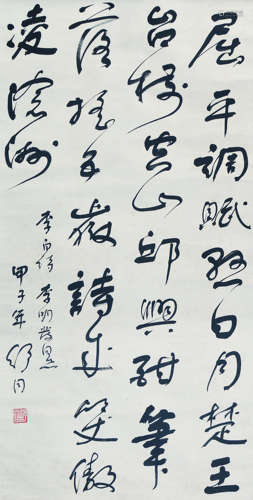 屈平詞賦懸日月楚王
台榭空山邱興酣筆
落搖五嶽詩成笑傲
凌滄洲
李白诗 李明
甲子年 舒同